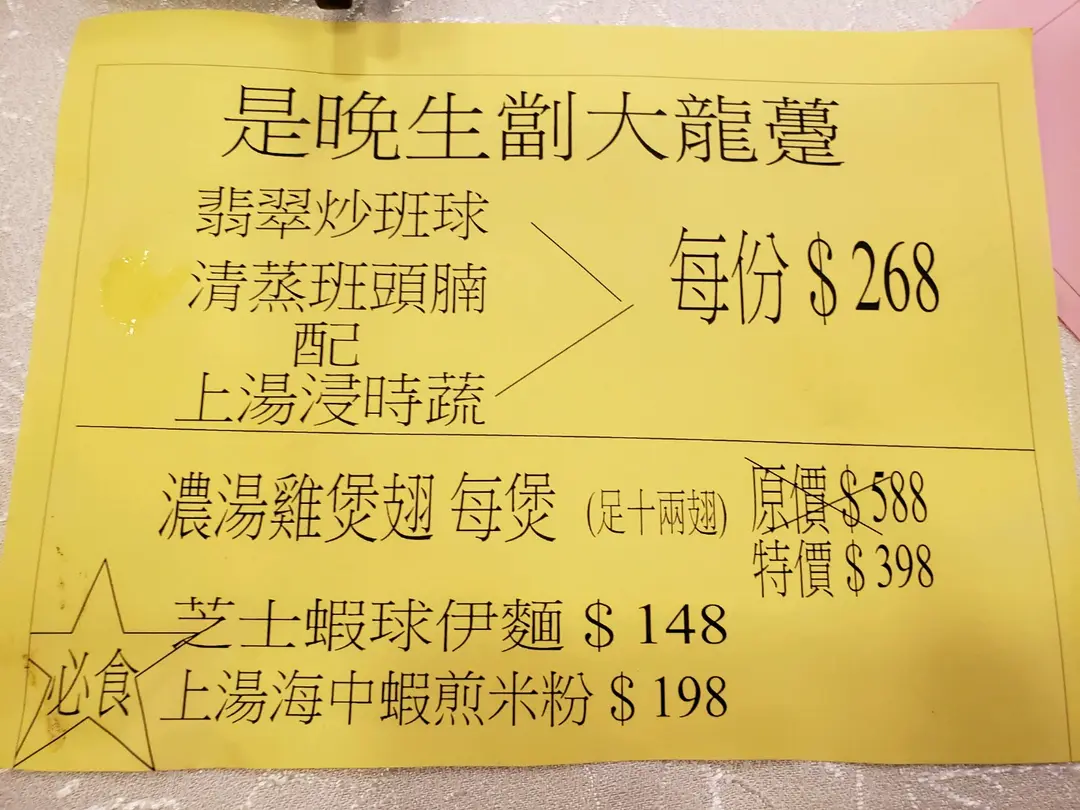 是晚生劏大龍躉
翡翠炒班球
清蒸班頭腩
配
上湯浸時蔬
每份 $ 268
濃湯雞煲翅 每煲 (足十兩翅)
原價 $ 588
特價 $ 398
芝士蝦球伊麵 $ 148
必食
上湯海中蝦煎米粉 $ 198